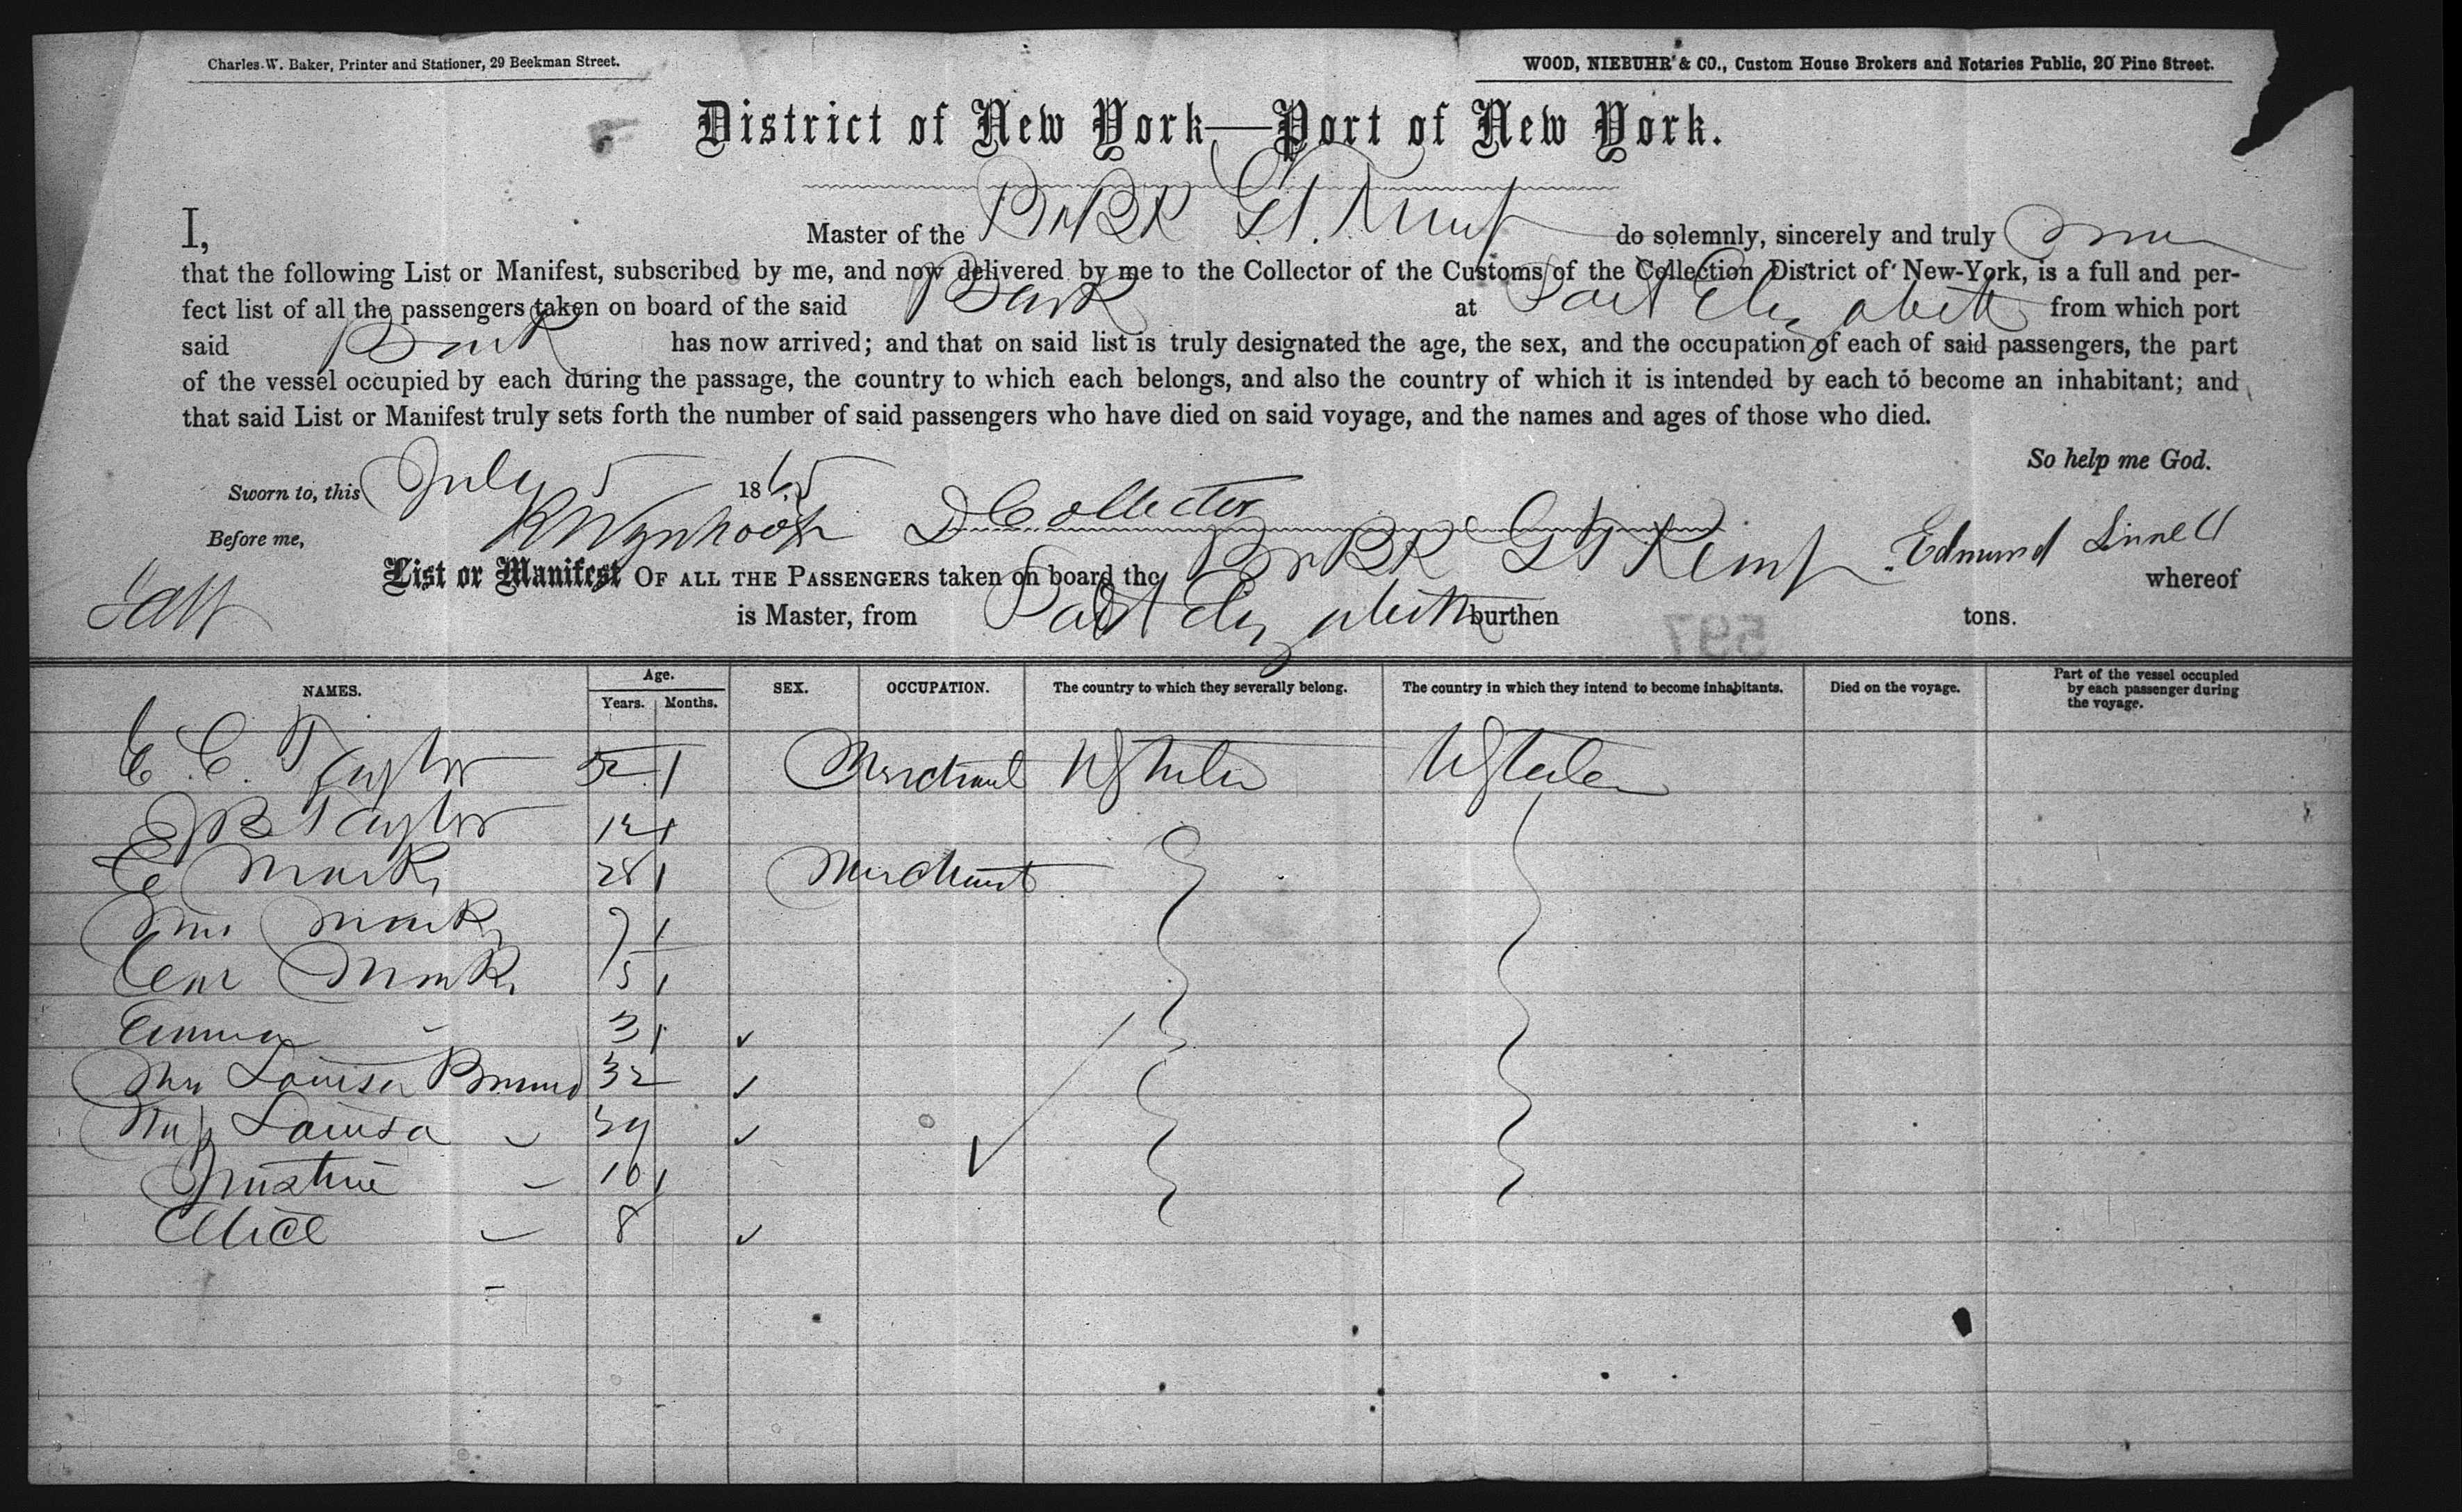 Charles W. Baker, Printer and Stationer, 29 Beekman Street.
WOOD, NIEBUHR & CO., Custom House Brokers and Notaries Public, 20 Pine Street.
District of New York—Port of New York.
I, Master of the Br BK G. T. Kemp do solemnly, sincerely and truly
that the following List or Manifest, subscribed by me, and now delivered by me to the Collector of the Customs of the Collection District of New-York, is a full and per-
fect list of all the passengers taken on board of the said Bark at Port Elizabeth from which port
said Bark has now arrived; and that on said list is truly designated the age, the sex, and the occupation of each of said passengers, the part
of the vessel occupied by each during the passage, the country to which each belongs, and also the country of which it is intended by each to become an inhabitant; and
that said List or Manifest truly sets forth the number of said passengers who have died on said voyage, and the names and ages of those who died.
So help me God.
Sworn to, this July 5 1865
Before me, R Wynkoop D Collector
Edmund Linnell
List or Manifest OF ALL THE PASSENGERS taken on board the Br BK G T Kemp whereof
is Master, from Port Elizabeth burthen tons.
597
NAMES. Age. Years. Months. SEX. OCCUPATION. The country to which they severally belong. The country in which they intend to become inhabitants. Died on the voyage. Part of the vessel occupied by each passenger during the voyage.
E. C. Taylor Merchant U States U States
E B Taylor 12
E Marks 28 Merchant
Marks 7
Marks 5
Emma 3
Mrs Louisa 32
Louisa
10
Alice 8